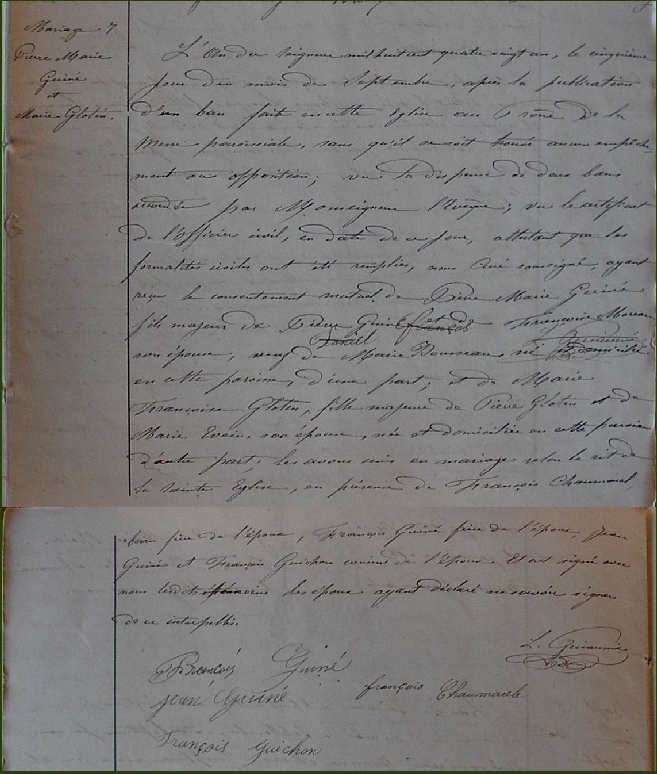 Mariage 7
Pierre Marie
Guiné
et
Marie Glotin.
L'An du Seigneur mil huit cent quatre vingt un, le cinquième
jour du mois de Septembre, après la publication
d'un ban fait en cette Eglise au Prône de la
Messe paroissiale, sans qu'il se soit trouvé aucun empêche-
ment ou opposition; vu la dispense de deux bans
accordée par Monseigneur l'Evêque; vu le certificat
de l'Officier civil, en date de ce jour, attestant que les
formalités civiles ont été remplies, nous Curé soussigné, ayant
reçu le consentement mutuel de Pierre Marie Guiné
fils majeur de Pierre Guiné et de Françoise Moreau
son épouse, veuf de Marie Rousseau, né et domicilié
en cette paroisse, d'une part; et de Marie
Françoise Glotin, fille majeure de Pierre Glotin et de
Marie Evain, son épouse, née et domiciliée en cette paroisse
d'autre part, les avons unis en mariage selon le rit de
la Sainte Eglise, en présence de François Chaumorel,
beau frère de l'époux, François Guiné frère de l'époux, Jean
Guiné et François Guichon cousins de l'époux. Et ont signé avec
nous les époux ayant déclaré ne savoir signer
de ce interpellés.
L. Guiaumin
François Guiné
jean Guiné
françois Chaumorel
François Guichon